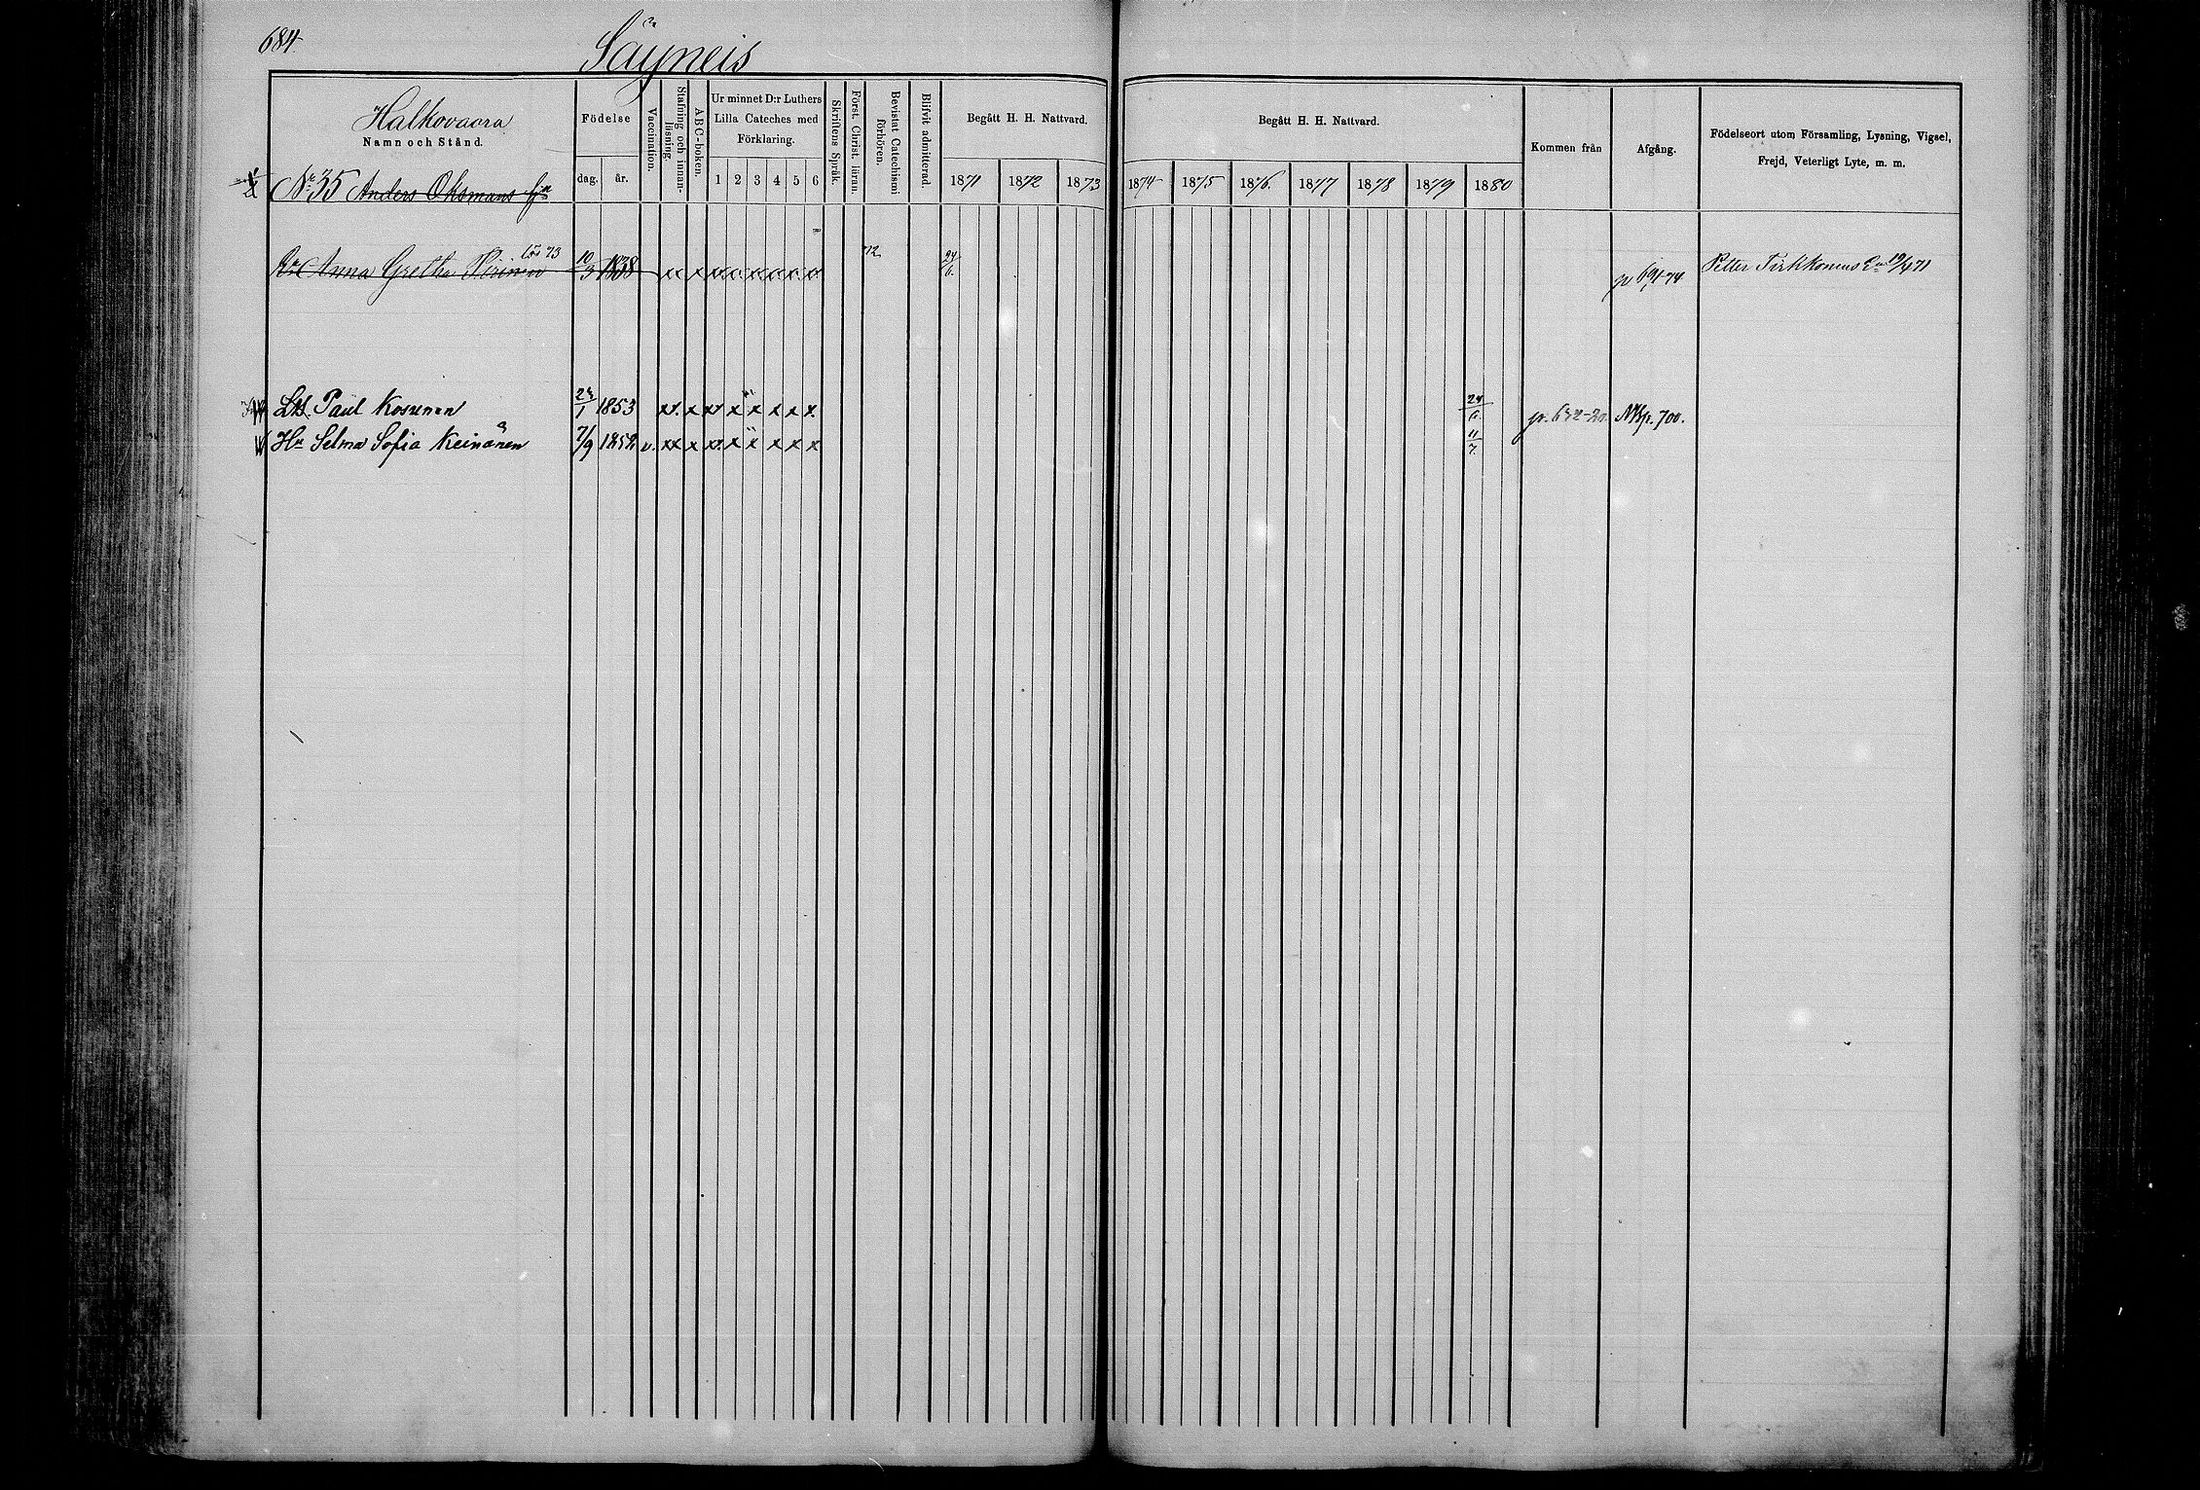 684.
Säyneis
Halkovaara
Namn och Stånd.
Födelse
dag.
år.
Vaccination.
Stafning och innan-
läsning.
ABC-boken.
Ur minnet D:r Luthers
Lilla Cateches med
Förklaring.
1 2 3 4 5 6
Skriftens Språk.
Först. Christ. läran.
Bevistat Catechismi
förhören.
Blifvit admitterad.
Begått H. H. Nattvard.
1871 1872 1873
Begått H. H. Nattvard.
1874 1875 1876. 1877 1878 1879 1880
Kommen från
Afgång.
Födelseort utom Församling, Lysning, Vigsel,
Frejd, Veterligt Lyte, m. m.
No 35 Anders Oksmans
Anna Gretha 73 10/3 1838 72 24/6. p 691-74 Petter Tirkkonens 19/4 71
Paul Kosunen 1853 xx. x x x x x x x. p. 632-20. NKp. 700.
Hu Selma Sofia Keinänen 7/9 1852 v. xx x x x x x x x 11/7.